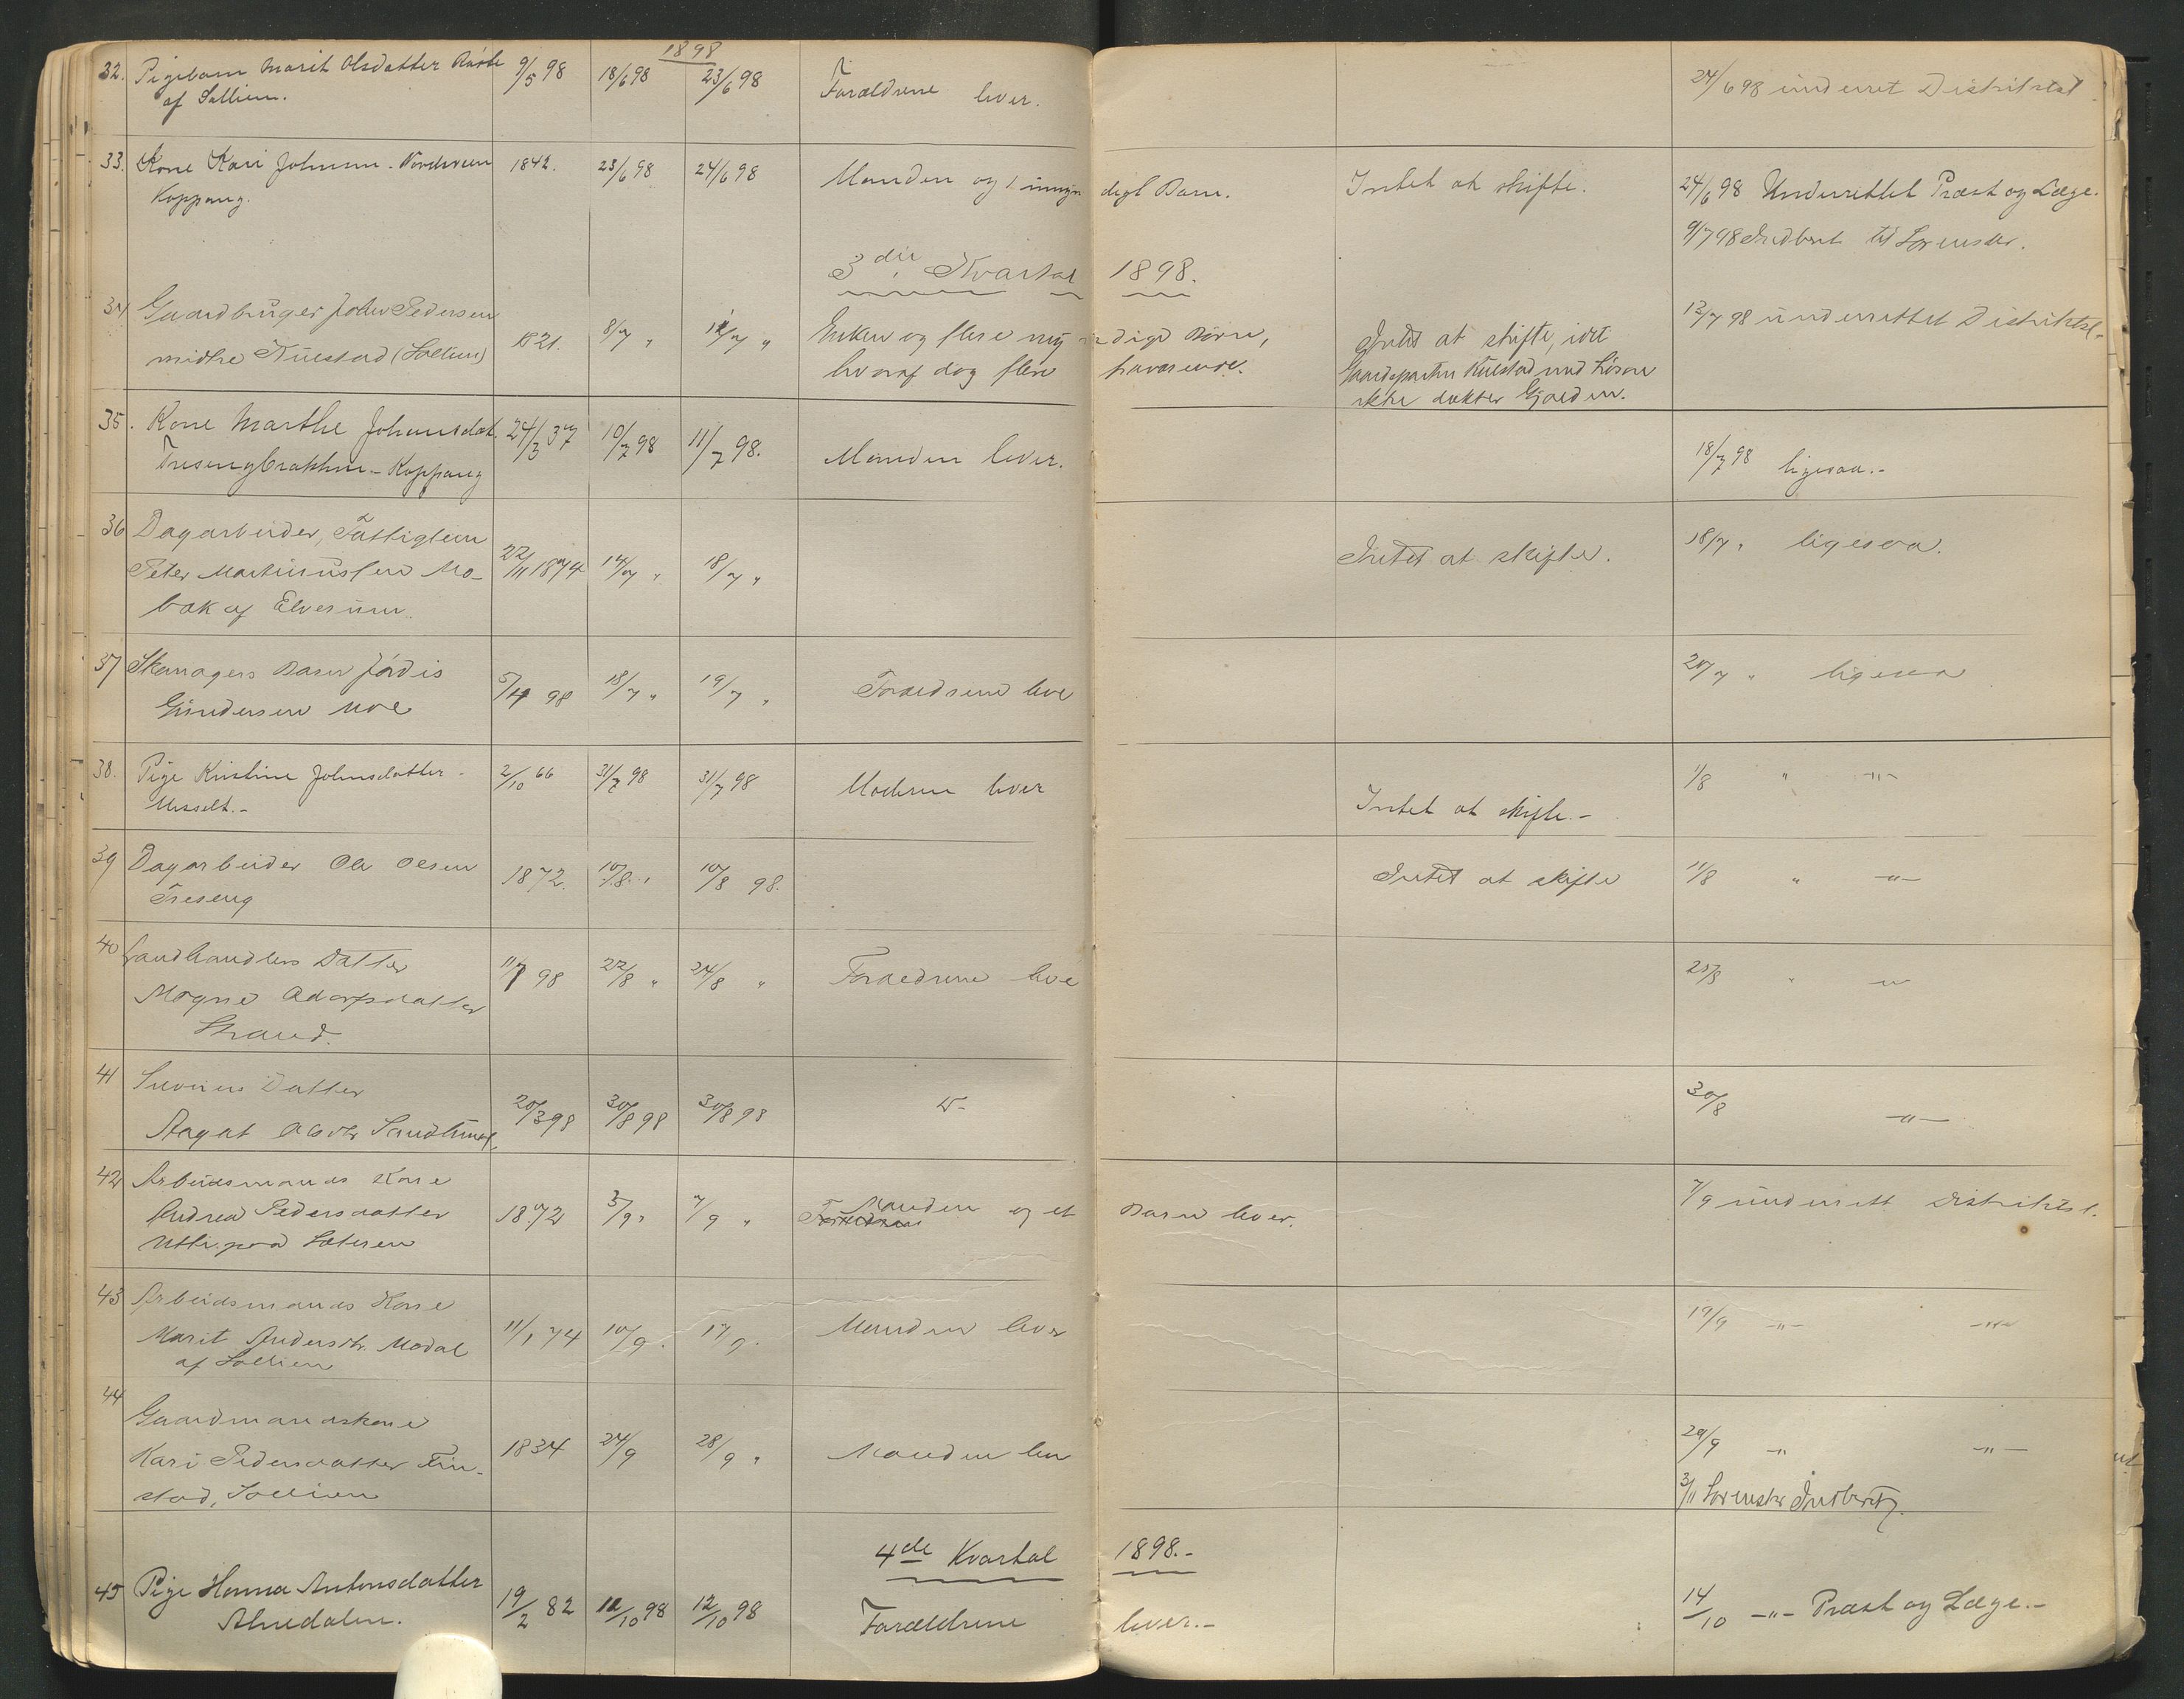 1898
32. Pigebarn Marit Olsdatter 9/5 98 18/6 98 23/6 98 Forældrene lever. 24/6 98 underret Distriktsl
af Sollien.
33. Kone Kari Johnsen - Koppang. 1842. 23/6 98 24/6 98 Manden og 1 umyndigt Barn. Intet at skifte. 24/6 98 Underrettet Præst og Læge.
9/7 98 Indberet til Sorenskr.
3die Kvartal 1898.
34 Gaardbruger John Pedersen
midtre Kuestad (Sollien) 1821. 8/7 " 12/7 " Enken og flere myndige Børn,
hvoraf dog flere fraværende.
Intet at skifte, idet
Gaardsparten Kuestad med Løsøre
ikke dækker Gjælden.
12/7 98 underrettet Distriktsl.
35. Kone Marthe Johansdat. 24/3 37 10/7 98 11/7 98. Manden lever. 18/7 98 ligesaa.-
Tresengbrakken - Koppang
36 Dagarbeider, Fattiglem
Peter Martinussen Mo-
bak af Elverum. 22/11 1874 14/7 " 18/7 " Intet at skifte. 18/7 " ligesaa.
37 Skomagers Barn Jørdis
Gundersen Moe 5/4 98 18/7 " 19/7 " Forældrene leve 20/7 " ligesaa
38. Pige Kristine Johnsdatter - 2/10 66 31/7 98 31/7 98 Moderen lever Intet at skifte.- 1/8 " -"-
Messelt.-
39 Dagarbeider Ole Olsen
Treseng 1872. 10/8 " 10/8 98. Intet at skifte 11/8 " -"-
40 Landhandlers Datter
Mogne Adolfsdatter
Strand. 11/7 98 22/8 " 24/8 " Forældrene leve 25/8 " "
41 Datter
Aagot 20/3 98 30/8 98 30/8 98 30/8 -"-
42 Arbeidsmands Kone
Andrea Pedersdatter
paa Sæteren 1872 5/9 " 7/9 " Forældrene Manden og et Barn lever. 7/9 underrett Distriktsl.
43 Arbeidsmands Kone
Marit Andersdtr. Modal
af Sollien 11/1 74 10/9. 17/9. Manden lever 19/9 -"- -"-
44 Gaardmandskone
Kari Pedersdatter Fin-
stad, Sollien 1834 24/9 28/9 " Manden lever 29/9 -"- -"-
3/11 Sorenskr Indberetg.
4de Kvartal 1898.-
45 Pige Hanna Antonsdatter
Atnedalen. 19/2 82 12/10 98 12/10 98 Forældrene lever.- 14/10 -"- Præst og Læge.-